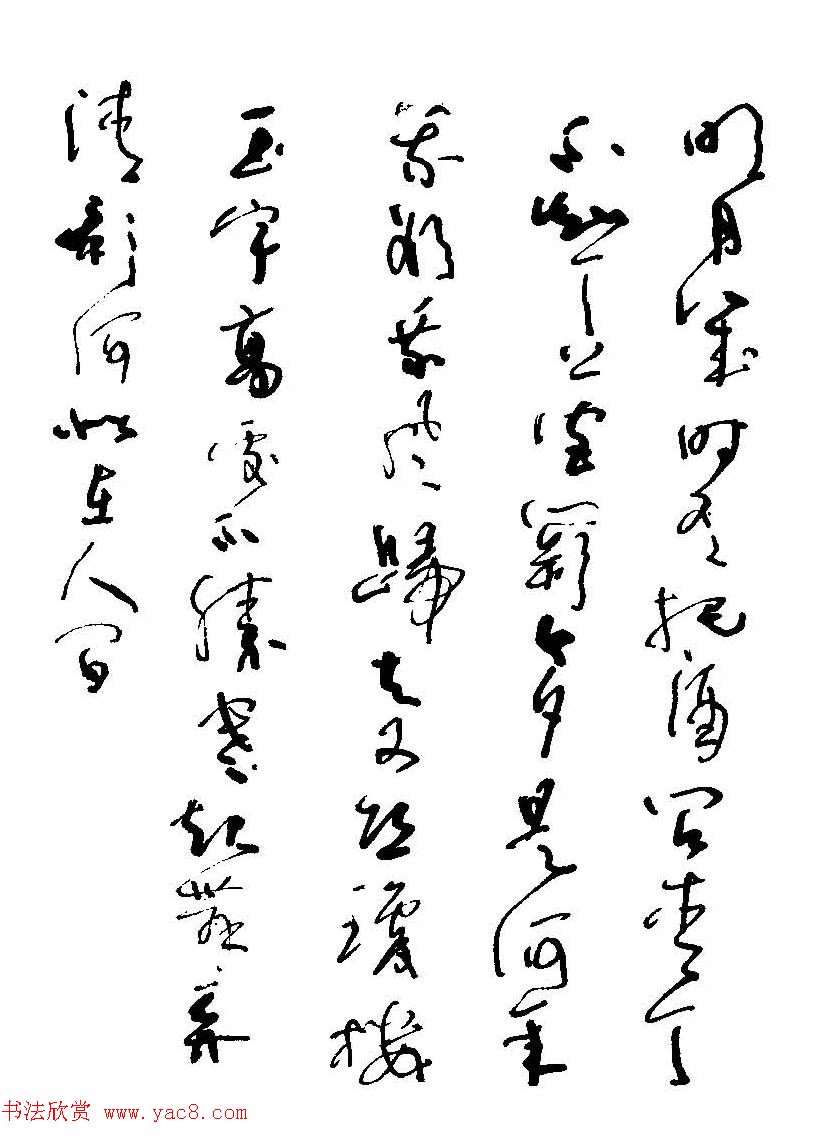 明月幾時有把酒問青天
不知天上宮闕今夕是何年
我欲乘風歸去又恐瓊樓
玉宇高處不勝寒起舞弄
清影何似在人間
书法欣赏 www.yac8.com